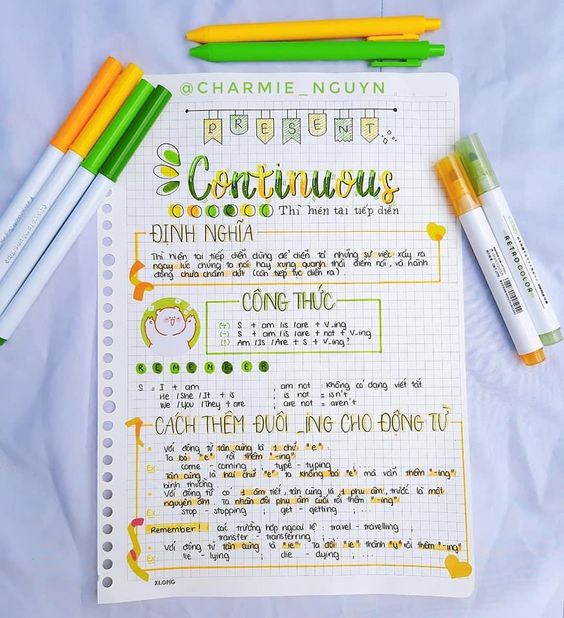 @CHARMIE_NGUYN
PRESENT
Continuous
Thì hiện tại tiếp diễn
ĐỊNH NGHĨA
Thì hiện tại tiếp diễn dùng để diễn tả những sự việc xảy ra
ngay lúc chúng ta nói hay xung quanh thời điểm nói, và hành
động chưa chấm dứt (còn tiếp tục diễn ra)
CÔNG THỨC
(+) S + am /is /are + V_ing
(-) S + am /is /are + not + V_ing
(?) Am /Is /Are + S + V_ing?
REMEMBER
S = I + am ; am not : không có dạng viết tắt
He /She /It + is ; is not = isn't
We /You /They + are ; are not = aren't
CÁCH THÊM ĐUÔI _ING CHO ĐỘNG TỪ
Với động từ tận cùng là 1 chữ "e"
Ta bỏ "e" rồi thêm "-ing"
Ex: come - coming ; type - typing
Tận cùng là hai chữ "e" ta không bỏ "e" mà vẫn thêm "-ing"
bình thường
Với động từ có 1 âm tiết, tận cùng là 1 phụ âm, trước là một
nguyên âm ta nhân đôi phụ âm cuối rồi thêm "-ing"
Ex: stop - stopping ; get - getting ;
Remember! Các trường hợp ngoại lệ : travel - travelling ;
transfer - transferring
Với động từ tận cùng là "ie" ta đổi "ie" thành "y" rồi thêm "-ing"
Ex: lie - lying ; die - dying ;
KLONG
RETRO COLOR